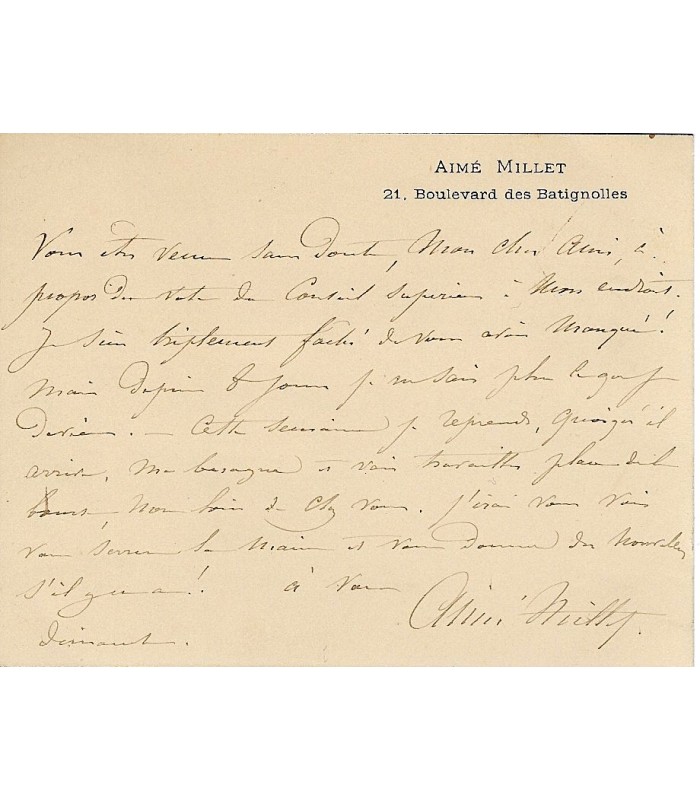 AIMÉ MILLET
21, Boulevard des Batignolles
Vous êtes venu sans doute, Mon cher Ami, à
propos du vote du Conseil Supérieur à Mon endroit.
Je suis triplement fâché de vous avoir Manqué!
Mais depuis 8 jours je ne sais plus ce que je
deviens. — Cette semaine je reprends, quoiqu'il
arrive, ma besogne et vais travailler place
Non loin de chez vous. j'irai vous voir
vous serrer la Main et vous donner des Nouvelles
s'il y en a! à vous
Aimé Millet.
dimanche.